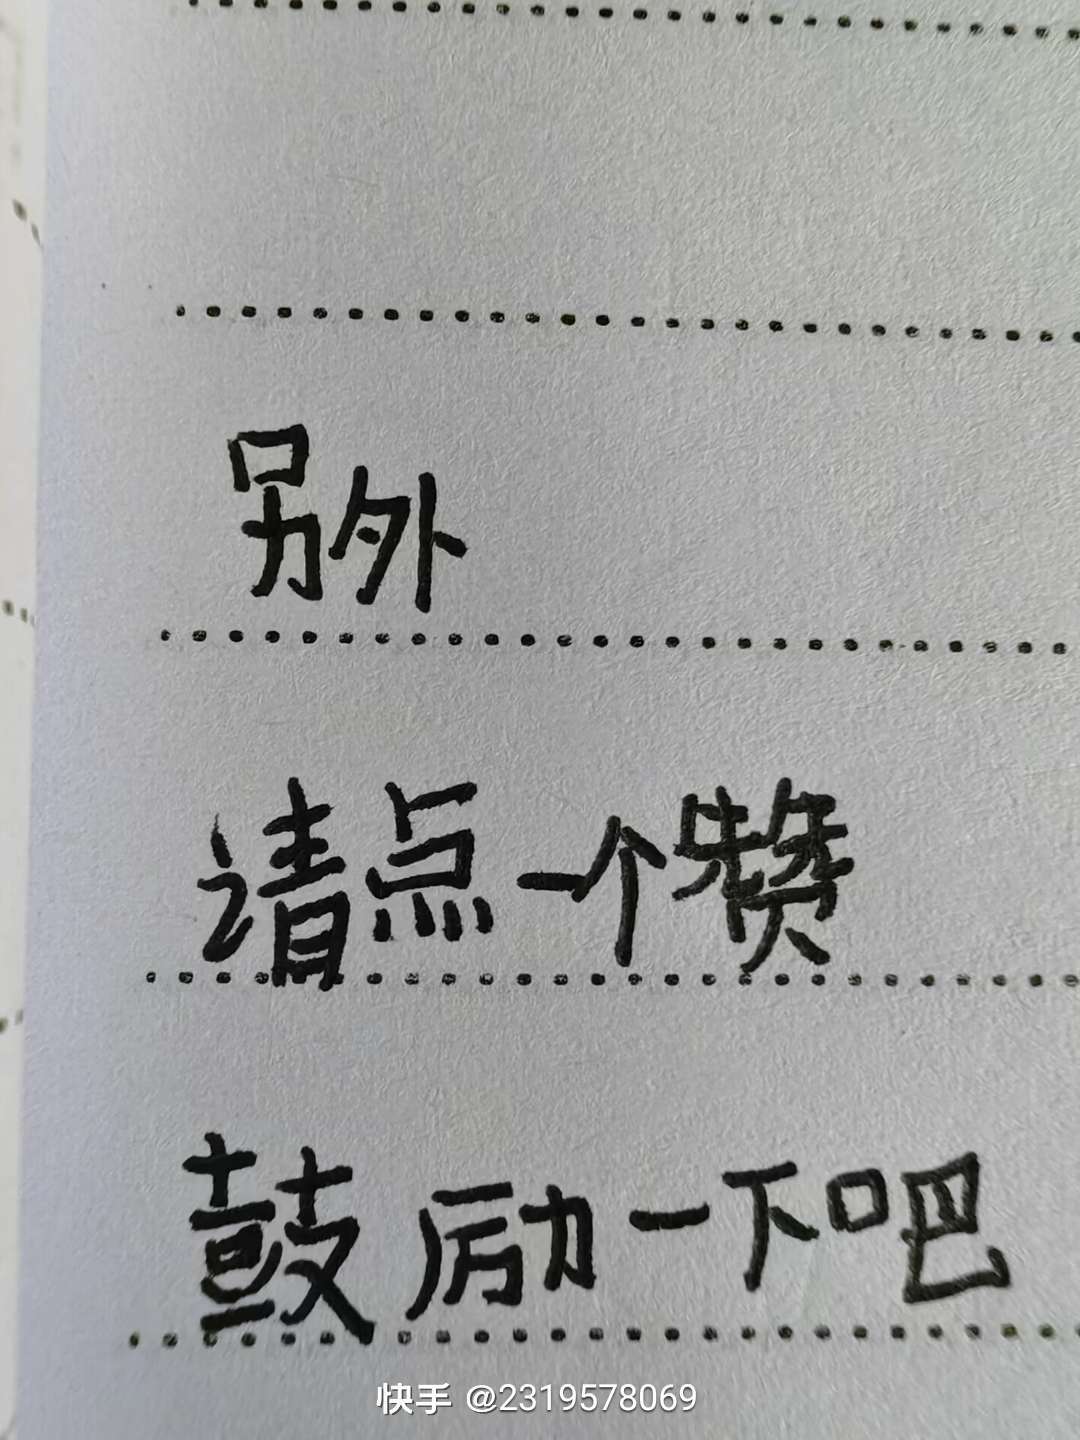 另外
请点一个赞
鼓励一下吧
快手 @2319578069